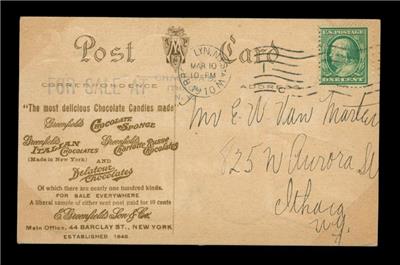 Post Card
LYNN, MASS.
MAR 10
10-PM
U.S. POSTAGE
ONE CENT
CORRESPONDENCE
ADDRESS
FOR SALE AT
"The most delicious Chocolate Candies made"
Greenfield's CHOCOLATE SPONGE
Greenfield's ITALIAN CHOCOLATES
(Made in New York)
Greenfield's Charlotte Russe Chocolates
AND
Delatour Chocolates
Of which there are nearly one hundred kinds.
FOR SALE EVERYWHERE
A liberal sample of either sent post paid for 10 cents
E. Greenfield's Son & Co.
Main Office, 44 BARCLAY ST., NEW YORK
ESTABLISHED 1848.
Mr E. W. Van Marter
125 W Aurora St
Ithaca
N.Y.